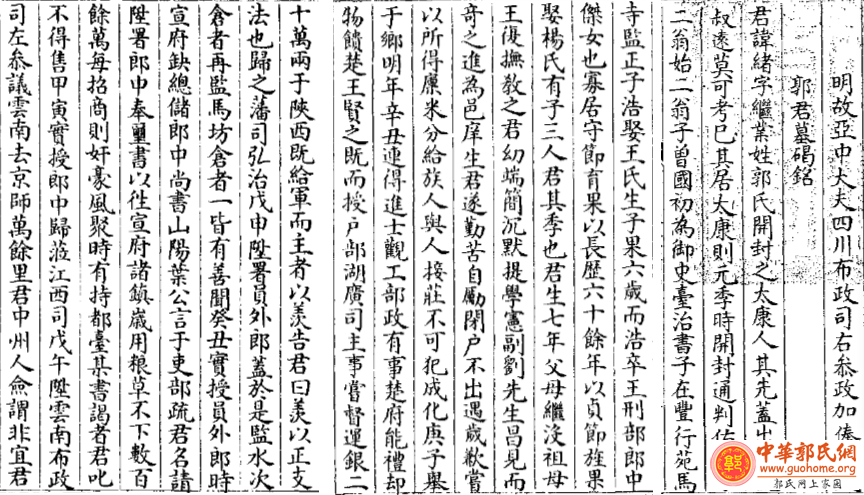 明故亞中大夫四川布政司右叅政加俸
郭君墓碣銘
君諱緒字繼業姓郭氏開封之太康人其先蓋出
叔遠莫可考巳其居太康則元季時開封通判佑
二翁始二翁子曾國初為御史臺治書子在豐行苑馬
寺監正子浩娶王氏生子果六歲而浩卒王刑部郎中
傑女也寡居守節育果以長歷六十餘年以貞節旌果
娶楊氏有子三人君其季也君生七年父母繼沒祖母
王復撫教之君幼端簡沉默提學憲副劉先生昌見而
奇之進為邑庠生君遂勤苦自勵閉户不出遇歲歉嘗
以所得廩米分給族人與人接莊不可犯成化庚子舉
于鄉明年辛丑連得進士觀工部政有事楚府能禮却
物饋楚王賢之既而授户部湖廣司主事嘗督運銀二
十萬兩于陝西既給軍而主者以羨告君曰羨以正支
法也歸之藩司弘治戊申陞署員外郎蓋於是監水次
倉者再監馬坊倉者一皆有善聞癸丑實授員外郎時
宣府缺總儲郎中尚書山陽葉公言于吏部疏君名請
陞署郎中奉璽書以往宣府諸鎮歲用粮草不下數百
餘萬每招商則奸豪風聚時有持都臺某書謁者君叱
不得售甲寅實授郎中歸蒞江西司戊午陞雲南布政
司左叅議雲南去京師萬餘里君中州人僉謂非宜君
中華郭氏網
www.guohome.org
郭氏网上家園